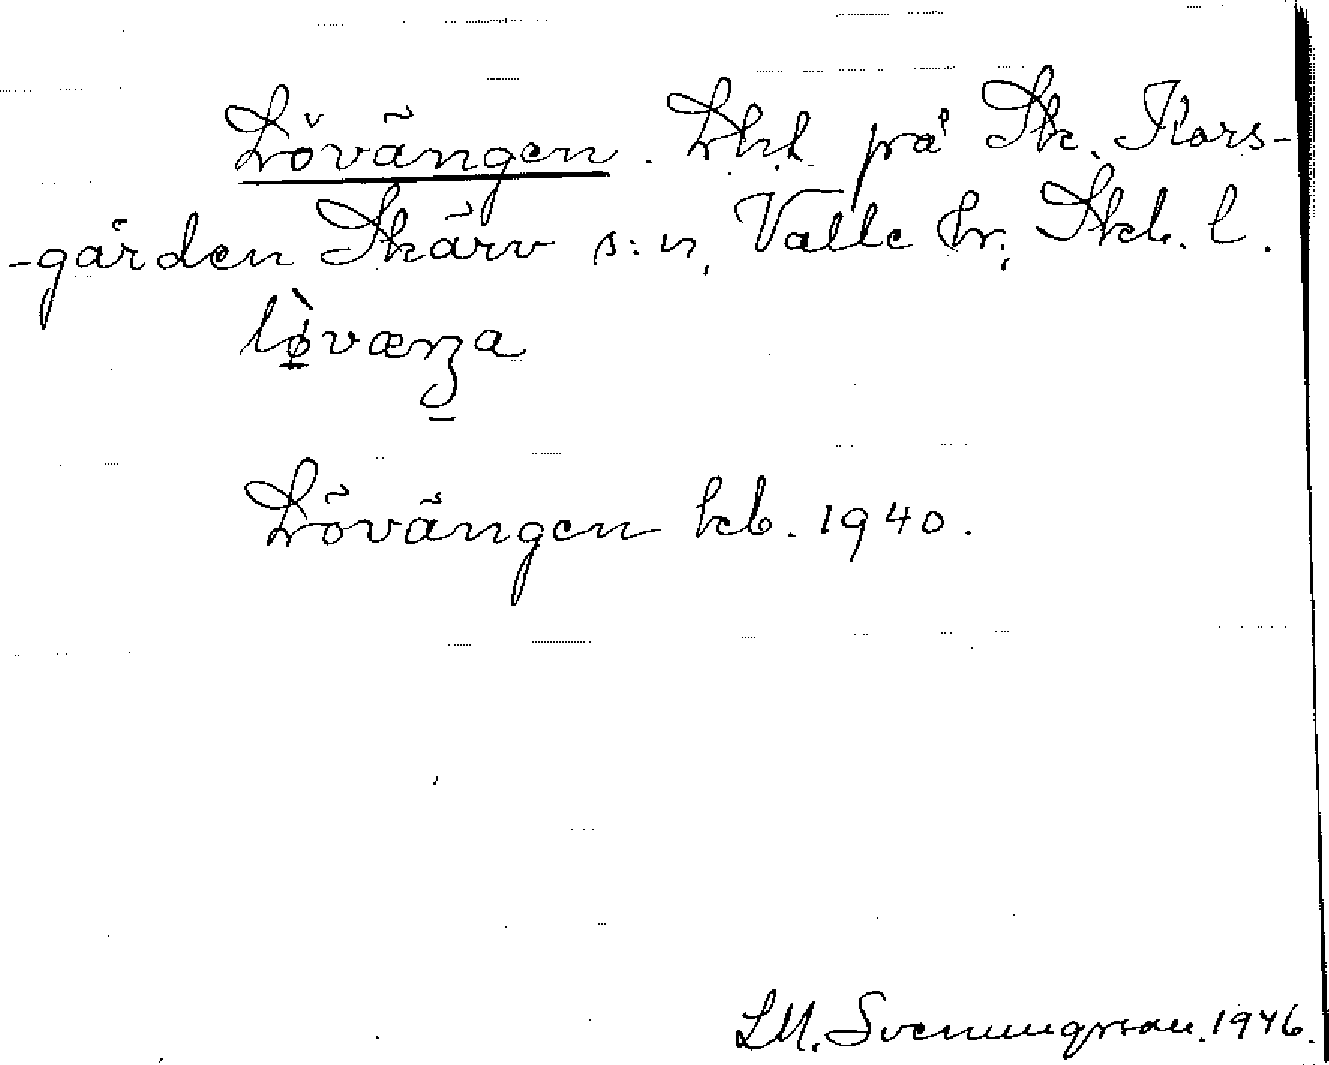 Lövängen. Lht på Sk. Kors-
-gården Skärv s:n, Valle hr, Skb. l.
lø̀væŋa
Lövängen kb. 1940.
LM. Svenungsson. 1946.